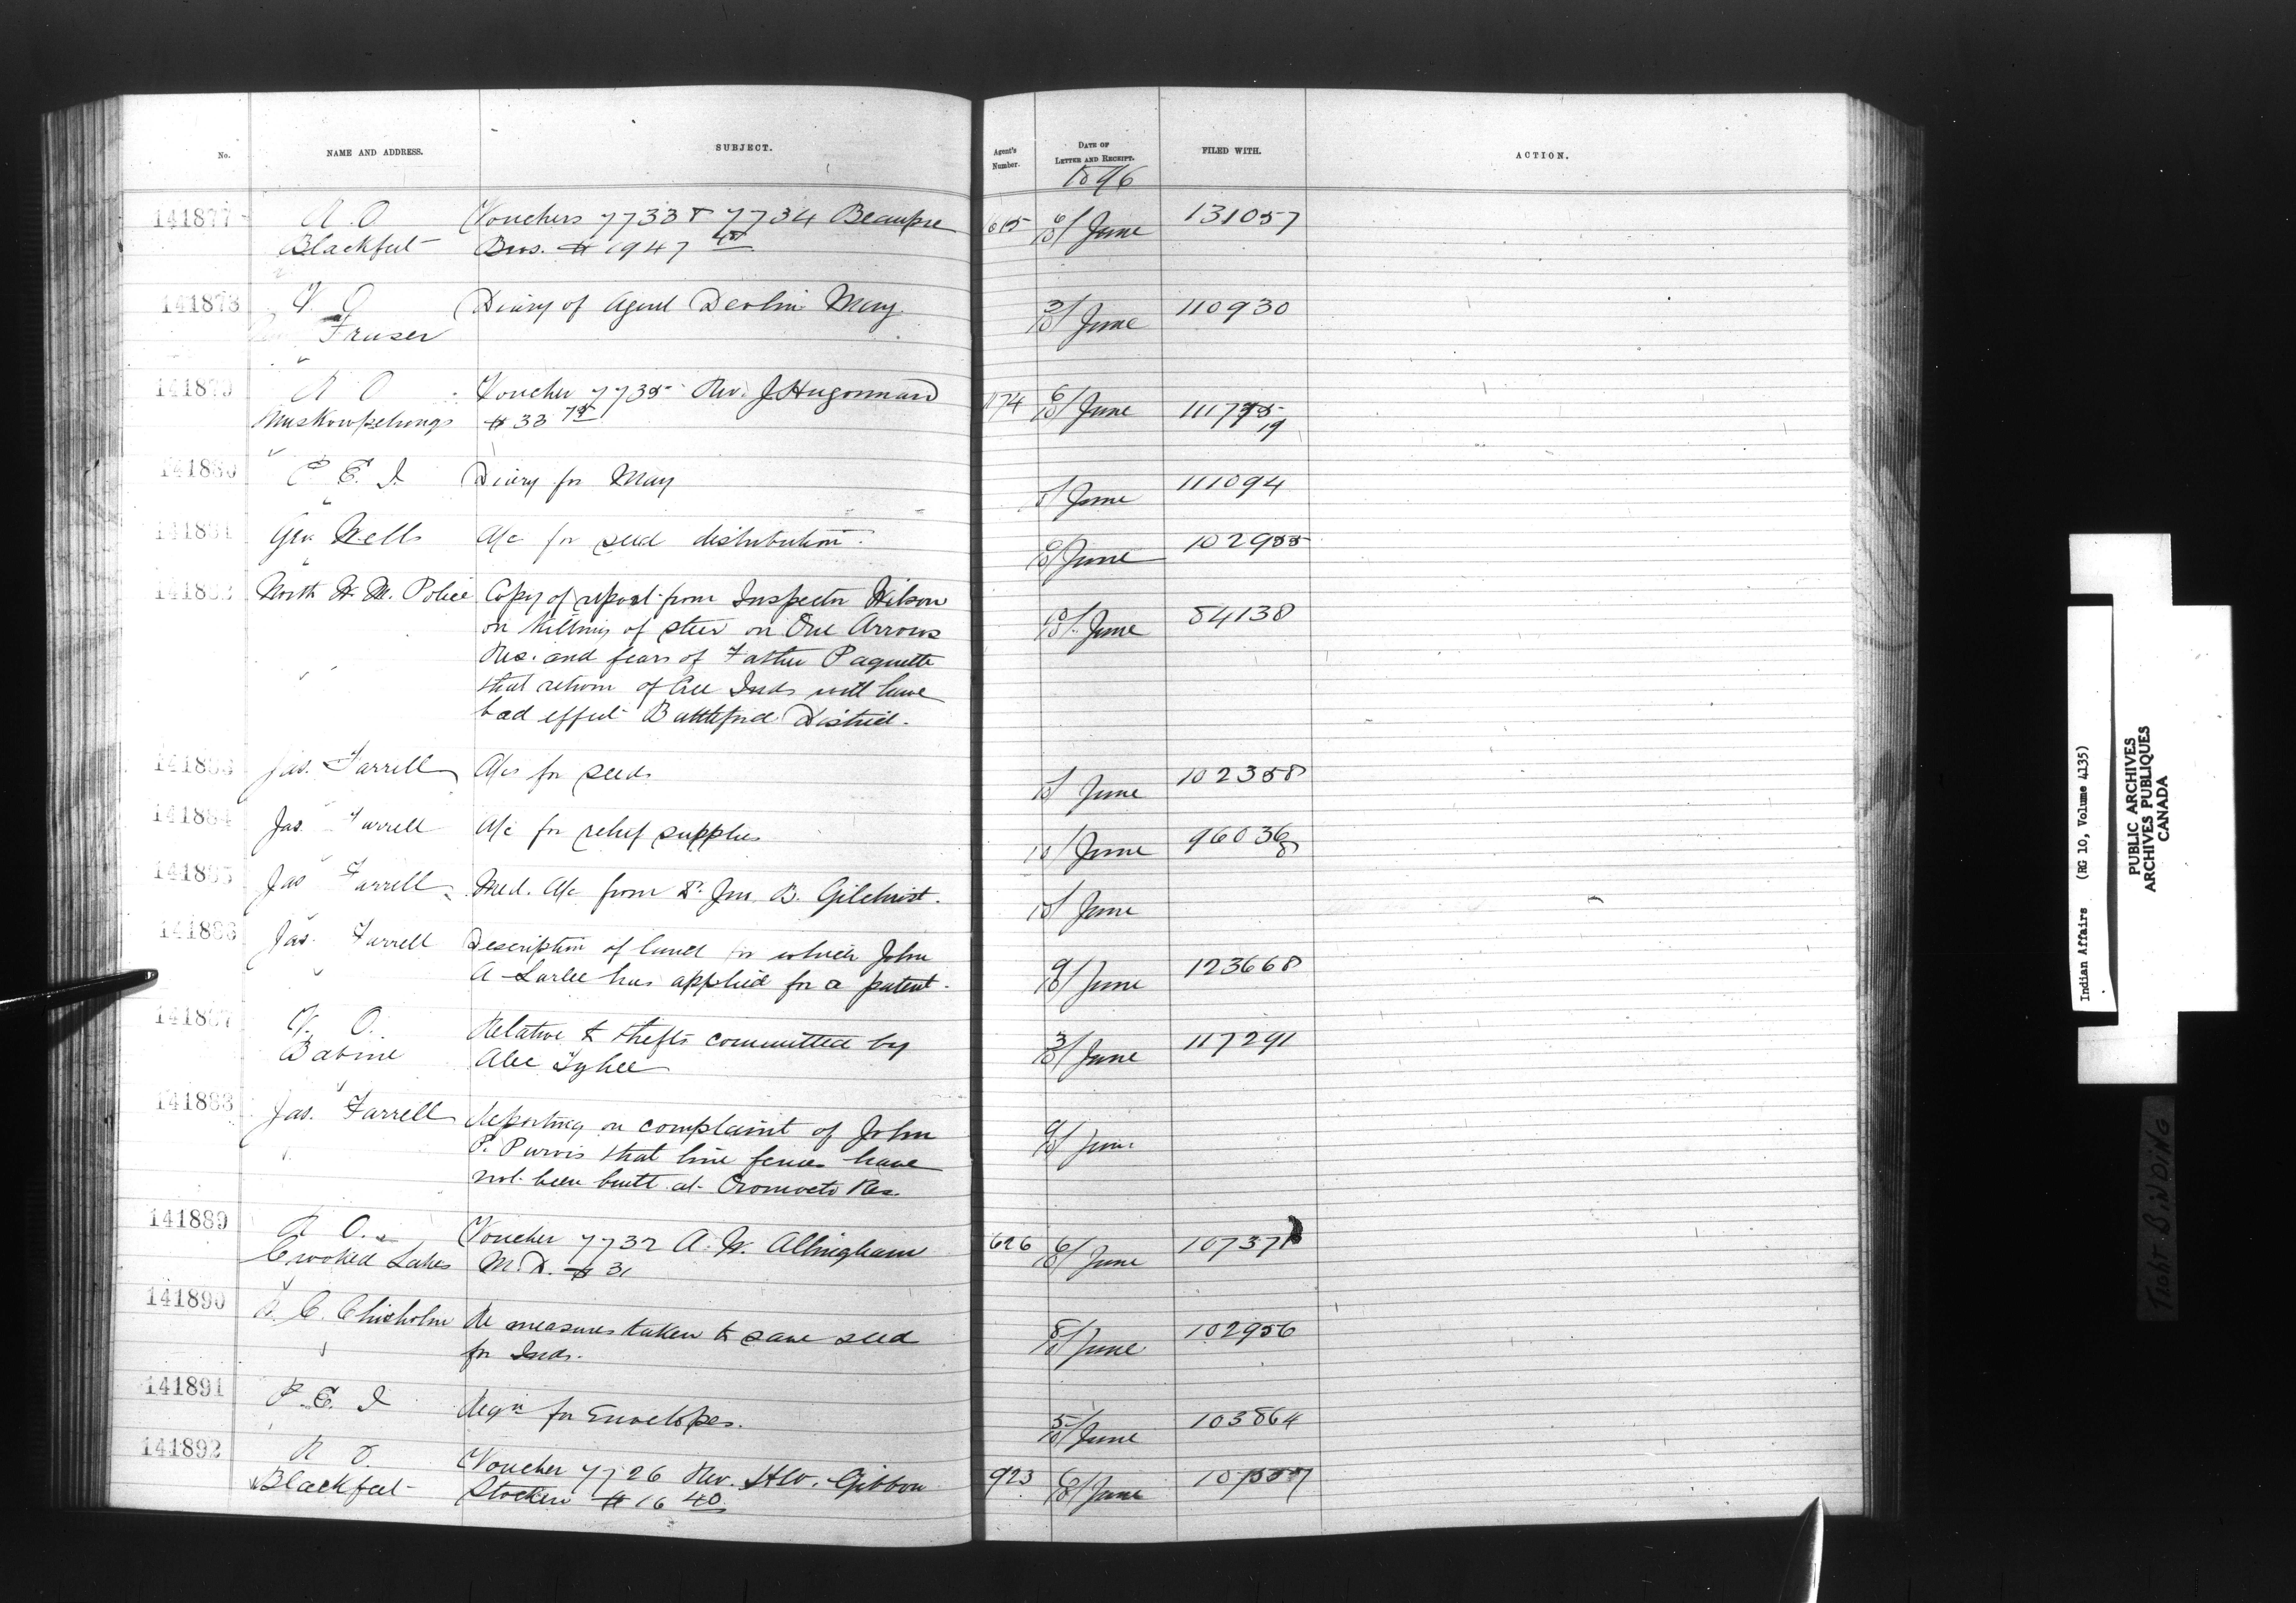 No. NAME AND ADDRESS. SUBJECT. Agent's Number. DATE OF LETTER AND RECEIPT. FILED WITH. ACTION.
1896
141877 R. O. Vouchers 7733 & 7734 Beaupre 615 6/10 June 131057
Blackfeet Bros. $1947
141878 V. O. Diary of Agent Devlin May. 3/10 June 110930
Fraser
141879 R O Voucher 7735 Rev. J Hugonnard 1174 6/10 June 111735
Muskowpetungs $33 75 19
141880 P E. I. Diary for May June 111094
141881 Geo Wells A/c for seed distribution. June 102955
141882 North W. M. Police Copy of report from Inspector Wilson 10 June 84138
on killing of steer on One Arrows
Res. and fears of Father Paquette
that return of Cree Inds will have
bad effect Battleford District.
141883 Jas. Farrell A/cs for seeds 10/ June 102358
141884 Jas. Farrell A/c for relief supplies 10/ June 96036
8
141885 Jas Farrell Med. A/c from Dr. Jno. B. Gilchrist. 10/ June
141886 Jas. Farrell Description of land for which John 9/10 June 123668
A Larlee has applied for a patent.
141887 V. O. Relative to thefts committed by 3/10 June 117291
Babine Alec Tyhee
141888 Jas. Farrell Reporting on complaint of John 9/10 June
P. Purvis that line fences have
not been built at Oromocto Res.
141889 R O. Voucher 7732 A. W. Allingham 626 6/10 June 107371
Crooked Lakes M.D. $31
141890 A. C. Chisholm Re measures taken to save seed 8/10 June 102956
for Inds.
141891 P. E. I Reqn for Envelopes. 5/10 June 103864
141892 R O. Voucher 7726 Rev. H.W. Gibbon 923 6/10 June
Blackfeet Stocken $16 40
Indian Affairs (RG 10, Volume 4135)
PUBLIC ARCHIVES
ARCHIVES PUBLIQUES
CANADA
TIGHT BINDING